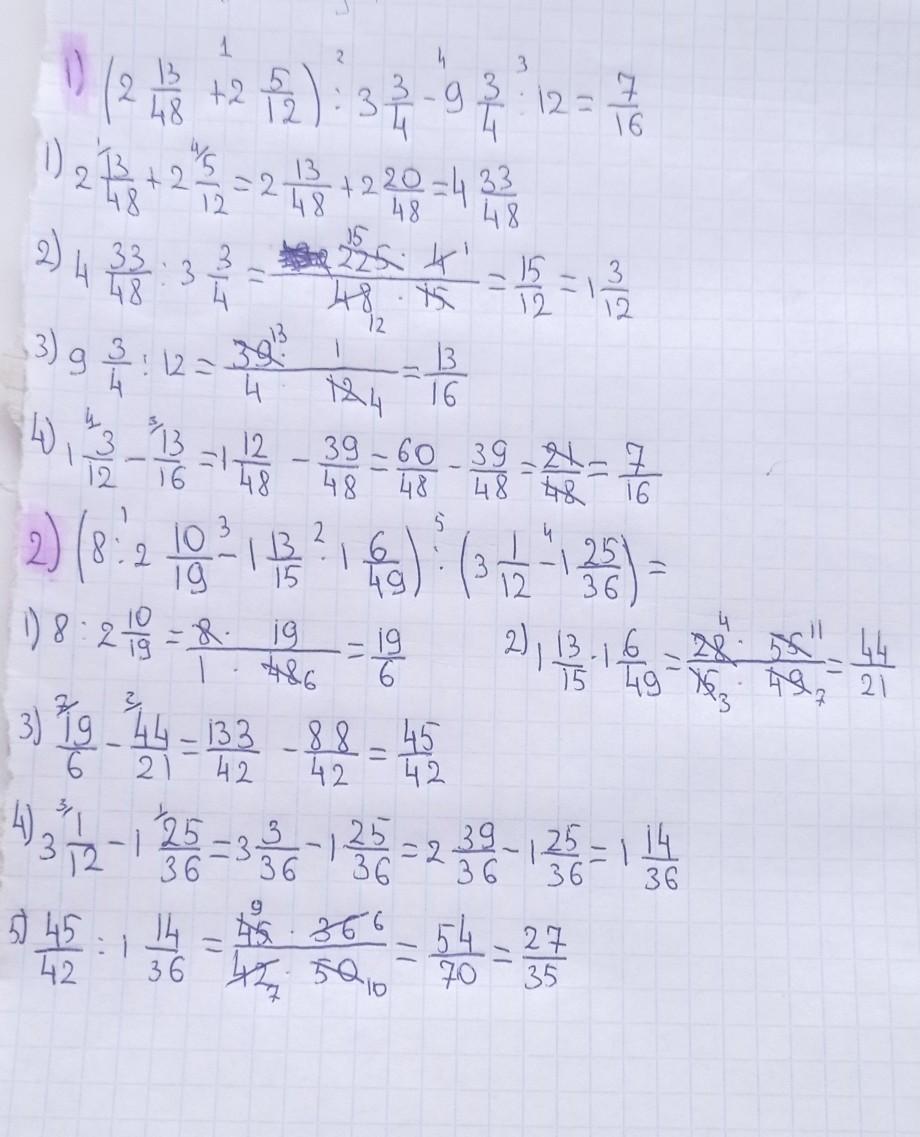 1) (2 13/48 + 2 5/12) : 3 3/4 - 9 3/4 : 12 = 7/16
1) 2 13/48 + 2 5/12 = 2 13/48 + 2 20/48 = 4 33/48
2) 4 33/48 : 3 3/4 = 225 · 4 / 48 · 15 = 15/12 = 1 3/12
3) 9 3/4 : 12 = 39 · 1 / 4 · 12 = 13/16
4) 1 3/12 - 13/16 = 1 12/48 - 39/48 = 60/48 - 39/48 = 21/48 = 7/16
2) (8 : 2 10/19 - 1 13/15 · 1 6/49) : (3 1/12 - 1 25/36) =
1) 8 : 2 10/19 = 8 · 19 / 1 · 48 = 19/6 2) 1 13/15 · 1 6/49 = 28 · 55 / 15 · 49 = 44/21
3) 19/6 - 44/21 = 133/42 - 88/42 = 45/42
4) 3 1/12 - 1 25/36 = 3 3/36 - 1 25/36 = 2 39/36 - 1 25/36 = 1 14/36
5) 45/42 : 1 14/36 = 45 · 36 / 42 · 50 = 54/70 = 27/35